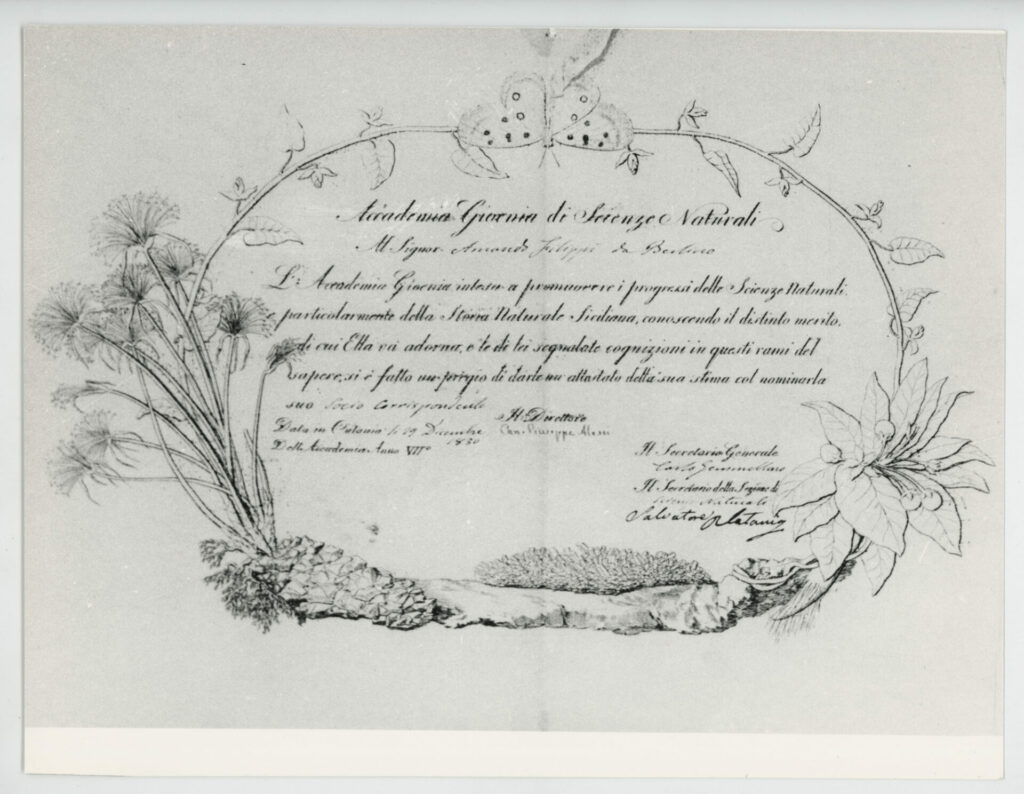 Accademia Gioenia di Scienze Naturali
Al Signor Amando Filippi da Berlino
L'Accademia Gioenia intesa a promuovere i progressi delle Scienze Naturali,
e particolarmente della Storia Naturale Siciliana, conoscendo il distinto merito,
di cui Ella và adorna, e le di lei segnalate cognizioni in questi rami del
sapere, si è fatto un pregio di darle un attestato della sua stima col nominarla
suo Socio Corrispondente
Data in Catania li 29 Dicembre
1830
Dell'Accademia Anno VII°
Il Direttore
Can. Giuseppe Alessi
Il Secretario Generale
Carlo Gemmellaro
Il Secretario della Sezione di
Naturale
Salvatore Platania